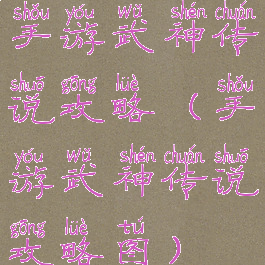 shǒu yóu wǔ shén chuán
手游武神传
shuō gōng lüè shǒu
说攻略（手
yóu wǔ shén chuán shuō
游武神传说
gōng lüè tú
攻略图）